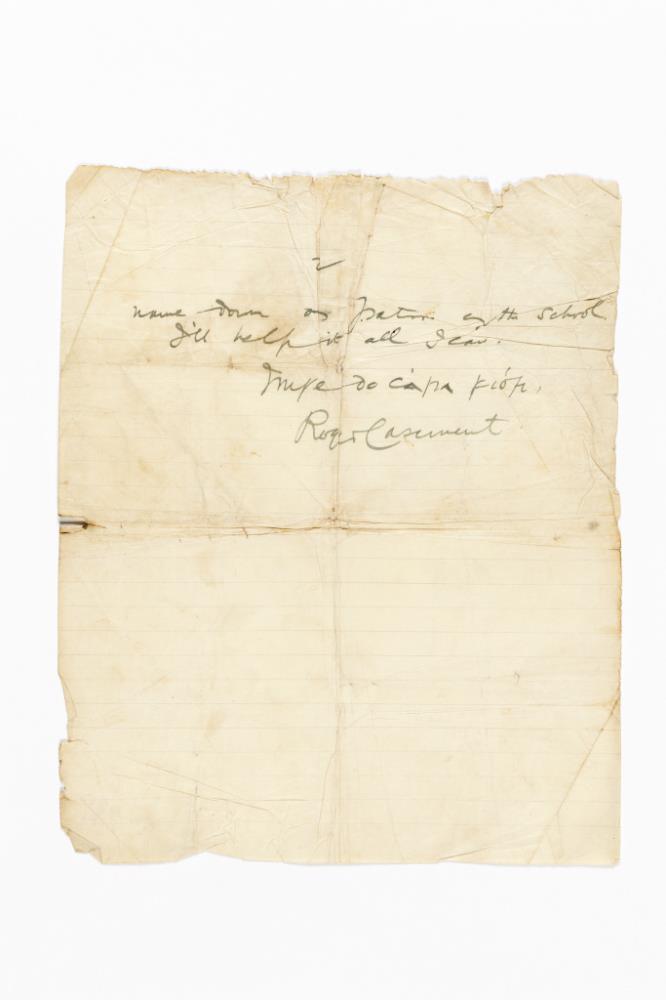 2
name down as patron of the School
I'll help it all I can.
Mise do cara fíor,
Roger Casement